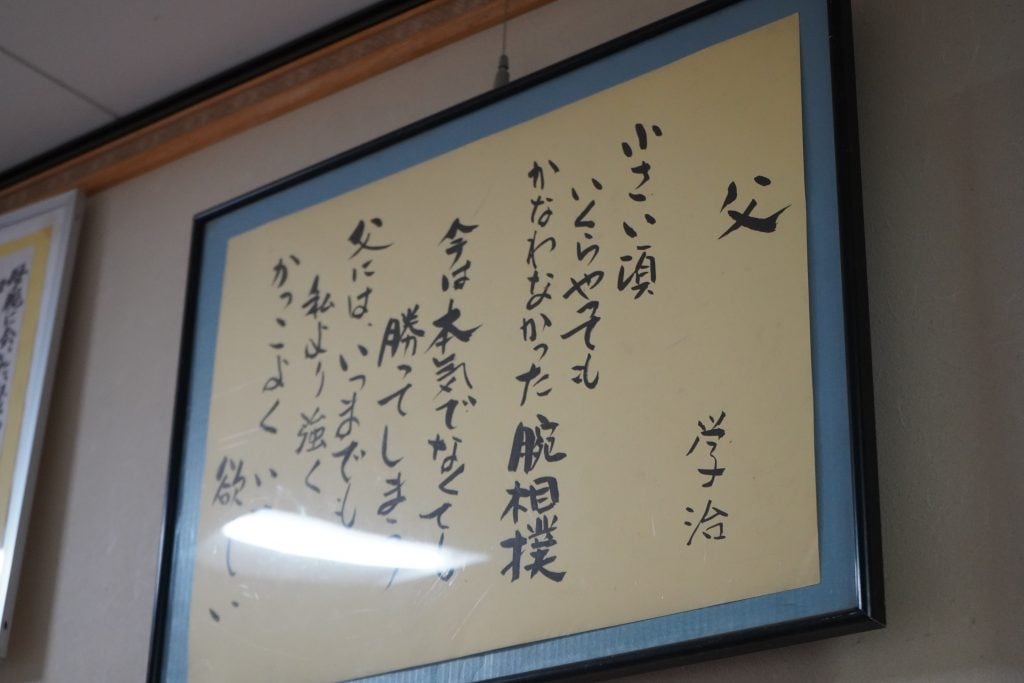 父
学治
小さい頃
いくらやっても
かなわなかった腕相撲
今は本気でなくても
勝ってしまう
父には、いつまでも
私より強く
かっこよく
欲しい